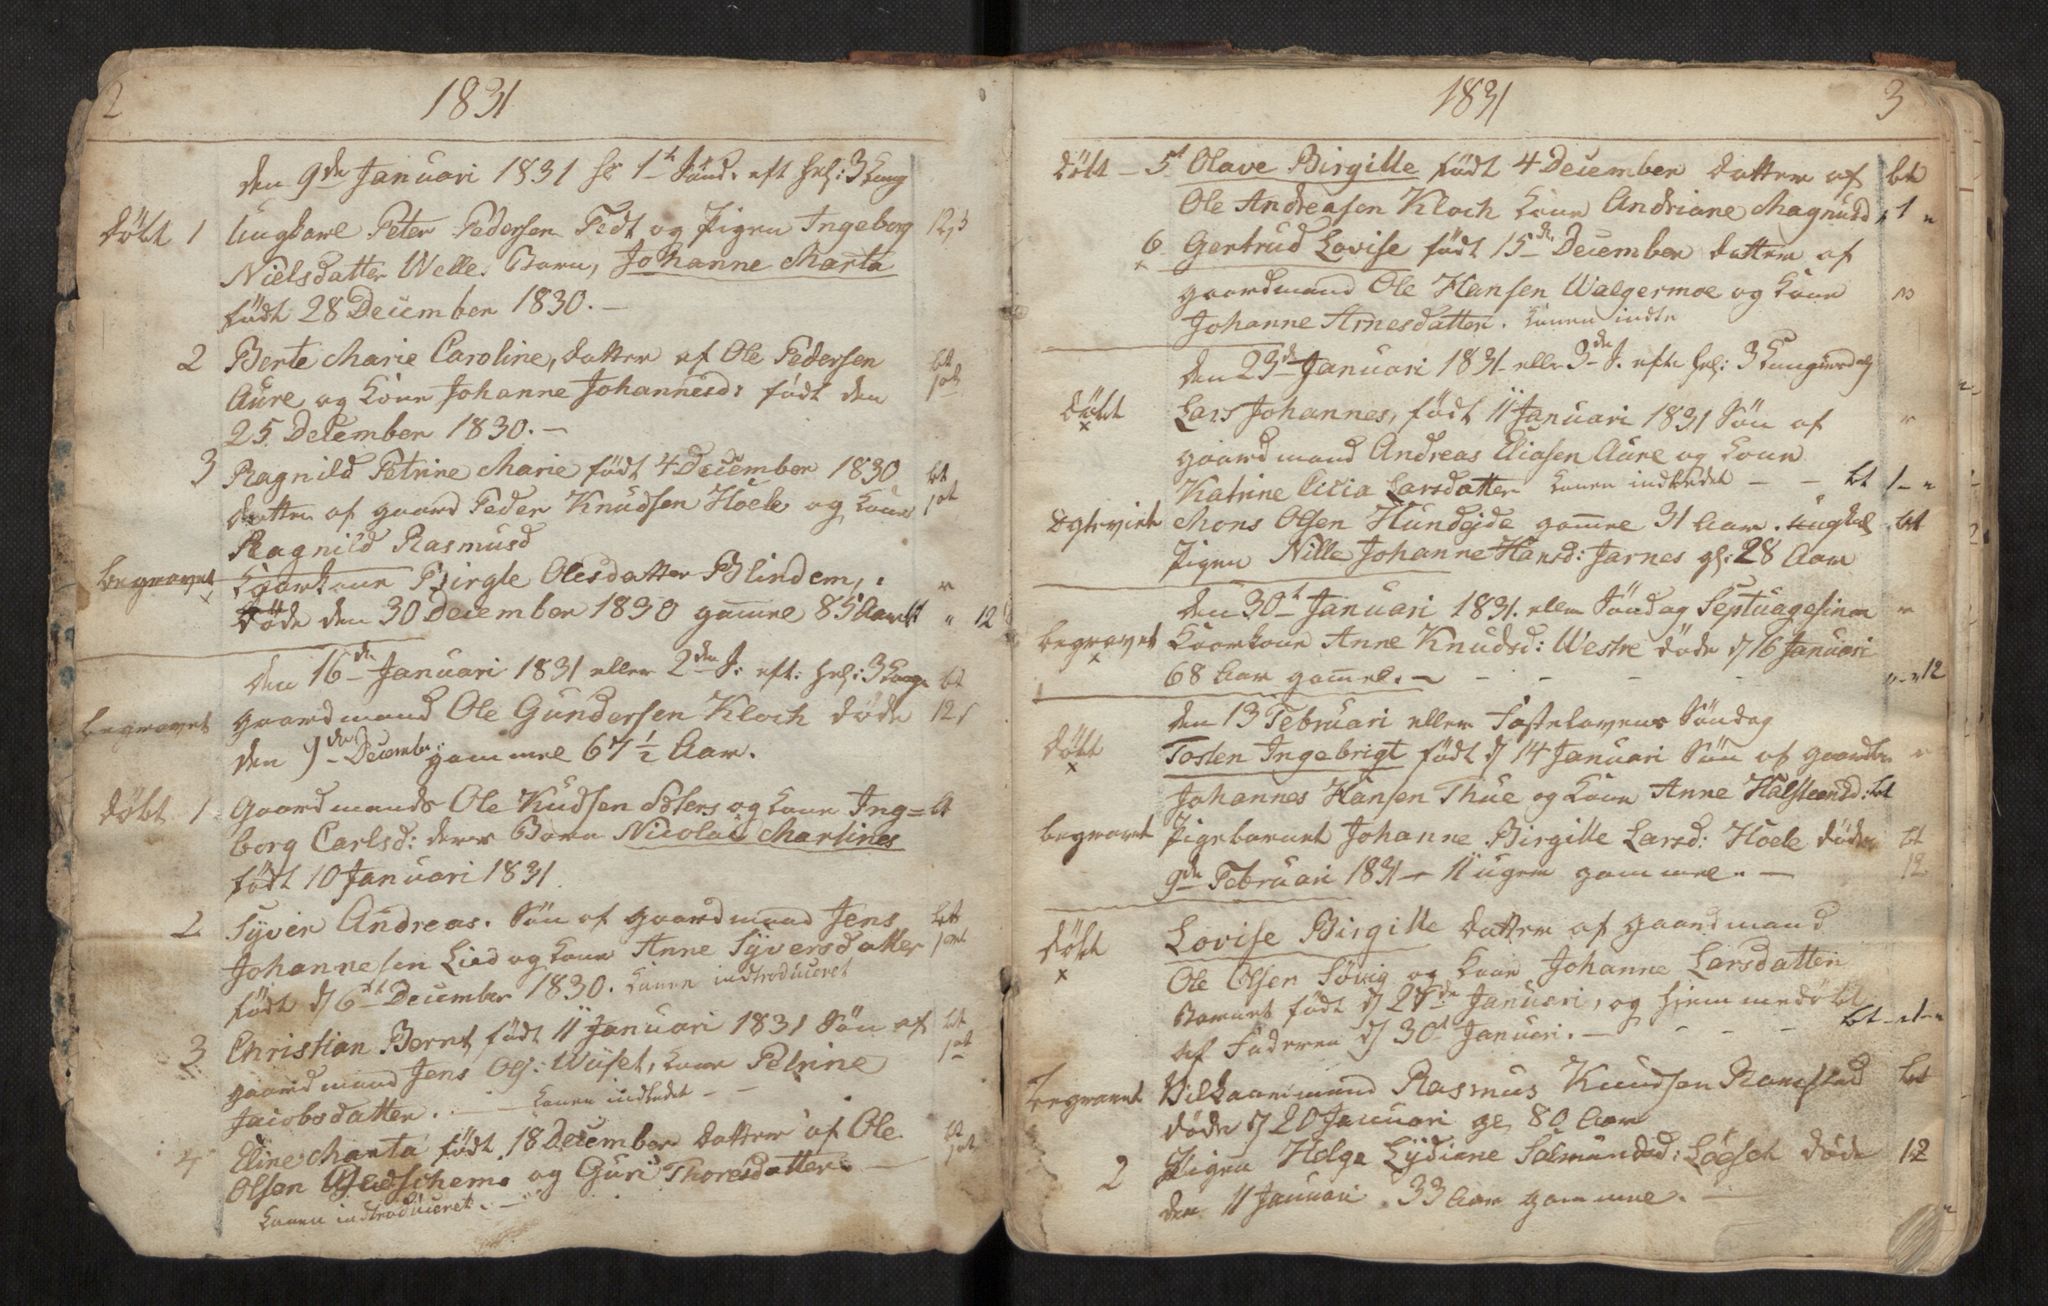 2
1831
den 9de Januari 1831 1t Sønd. eft hel: 3 Kong
Døbt 1 Ungkarl Peter Pedersen Fedt og Pigen Ingeborg
Nielsdatter Welle. Barn, Johanne Marta
født 28 December 1830. —
2 Berte Marie Caroline, datter af Ole Pedersen bt
Aure og Kone Johanne Johannesd: født den
25 December 1830. —
3 Ragnild Petrine Marie født 4 December 1830 bt
datter af gaard Peder Knudsen Hoele og Kone
Ragnild Rasmusd
begravet Kaarkone Birgte Olesdatter Blindem, "
døde den 30 December 1830 gamel 85 Aar bt " 12
den 16de Januari 1831 eller 2den S: eft: hel: 3 Kong bt
begravet gaardmand Ole Gundersen Kloch døde 12
den 9de Decembr: gammel 67 1/2 Aar.
Døbt 1 Gaardmands Ole Knudsen og Kone Ing= bt
borg Carlsd: deres Barn Nicolai Martines
født 10 Januari 1831
2 Syver Andreas. Søn af gaardmand Jens bt
Johannesen Lied og Kone Anne Syversdatter
født d 6t December 1830. Konen indtroduceret
3 Christian Bernt født 11 Januari 1831 Søn af bt
gaardmand Jens Ols: Wiiset, Kone Petrine
Jacobsdatter. Konen indledet —
4 Eline Marta født 18 December datter af Ole bt
Olsen og Guri Thoresdatter. —
Konen indtroduceret. —
1831
3
Døbt — 5 Olave Birgitte født 4 December datter af bt
Ole Andreasen Kloch Kone Andriane Magnusd " 1 "
6 Gertrud Lovise født 15de December datter af
gaardmand Ole Hansen Walgermoe og Kone
Johanne Arnesdatter. Konen indle
den 23de Januari 1831 eller 3de S. efter hel: 3 Kongersdag
Døbt Lars Johannes, født 11 Januari 1831 Søn af "
gaardmand Andreas Eliasen Aure og Kone
Katrine Cicia Larsdatter Konen indledet — — bt 1 — "
Egtevicte Mons Olsen Hundejde gamel 31 Aar. Ungkal bt
Pigen Nille Johanne Hansd: Jarnes gl: 28 Aar
den 30t Januari 1831. eller Søndag Septuagesima "
begravet Kaarkone Anne Knudsd: Westre døde d 16 Januari
68 Aar gammel. — " — " 12
den 13 Februari eller Fastelavens Søndag
Døbt Tosten Ingebrigt født d 14 Januari Søn af gaardm "
Johannes Hansen Thue og Kone Anne Halsteensd: bt
begravet Pigebarnet Johanne Birgitte Larsd: Hoele døde bt
9de Februari 1831 — 11 uger gammel. — 12
Døbt Lovise Birgitte datter af gaardmand
Ole Olsen Søvig og Kone Johanne Larsdatter
Barnet født d 28de Januari, og hjemmedøbt
af Faderen d 30t Januari. — bt — 1 — "
begravet Vilkaarmand Rasmus Knudsen Ramstad bt
døde d 20 Januari gl 80 Aar
2 Pigen Helga Lydiane Salmundsd: Løset døde 12
den 11 Januari. 33 Aar gammel. —